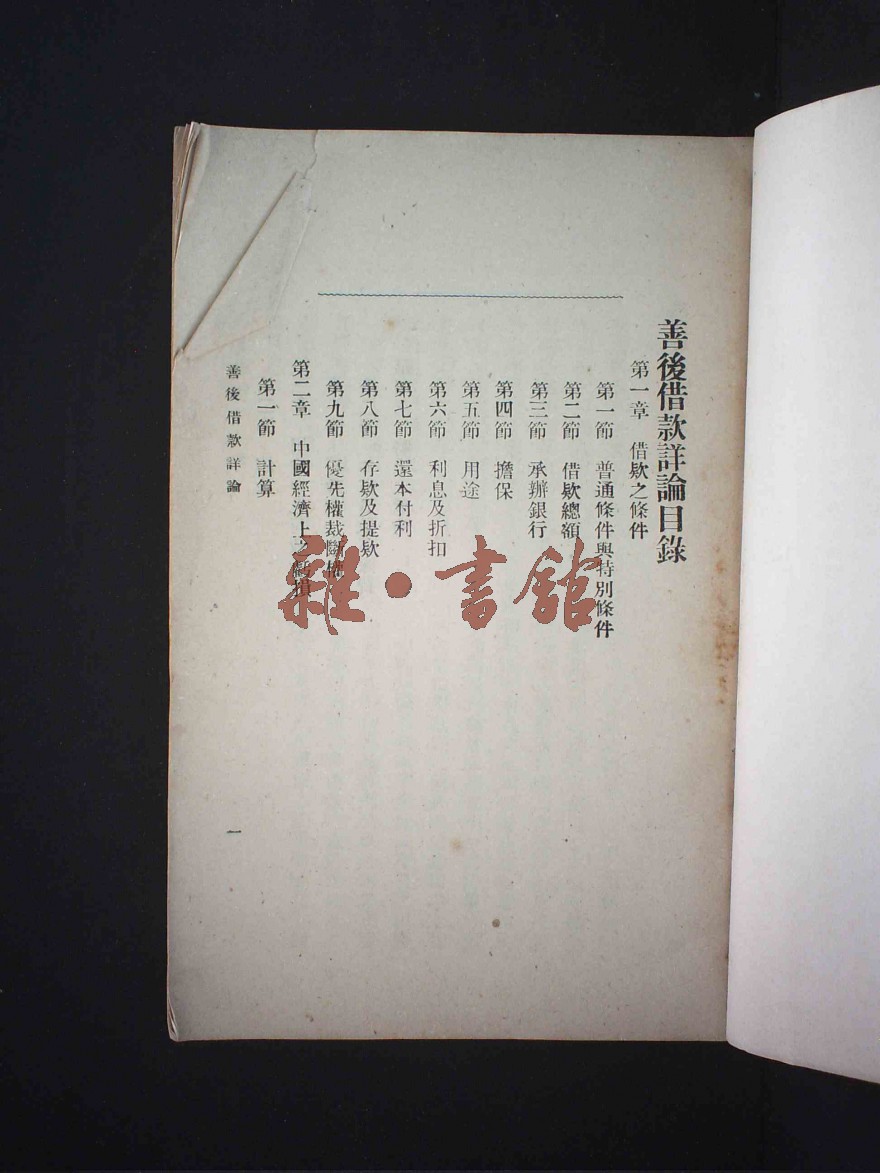 善後借款詳論目錄
第一章　借欵之條件
第一節　普通條件與特別條件
第二節　借欵總額
第三節　承辦銀行
第四節　擔保
第五節　用途
第六節　利息及折扣
第七節　還本付利
第八節　存欵及提欵
第九節　優先權裁斷權
第二章　中國經濟上之虧損
第一節　計算
善後借款詳論
一
雜·書館